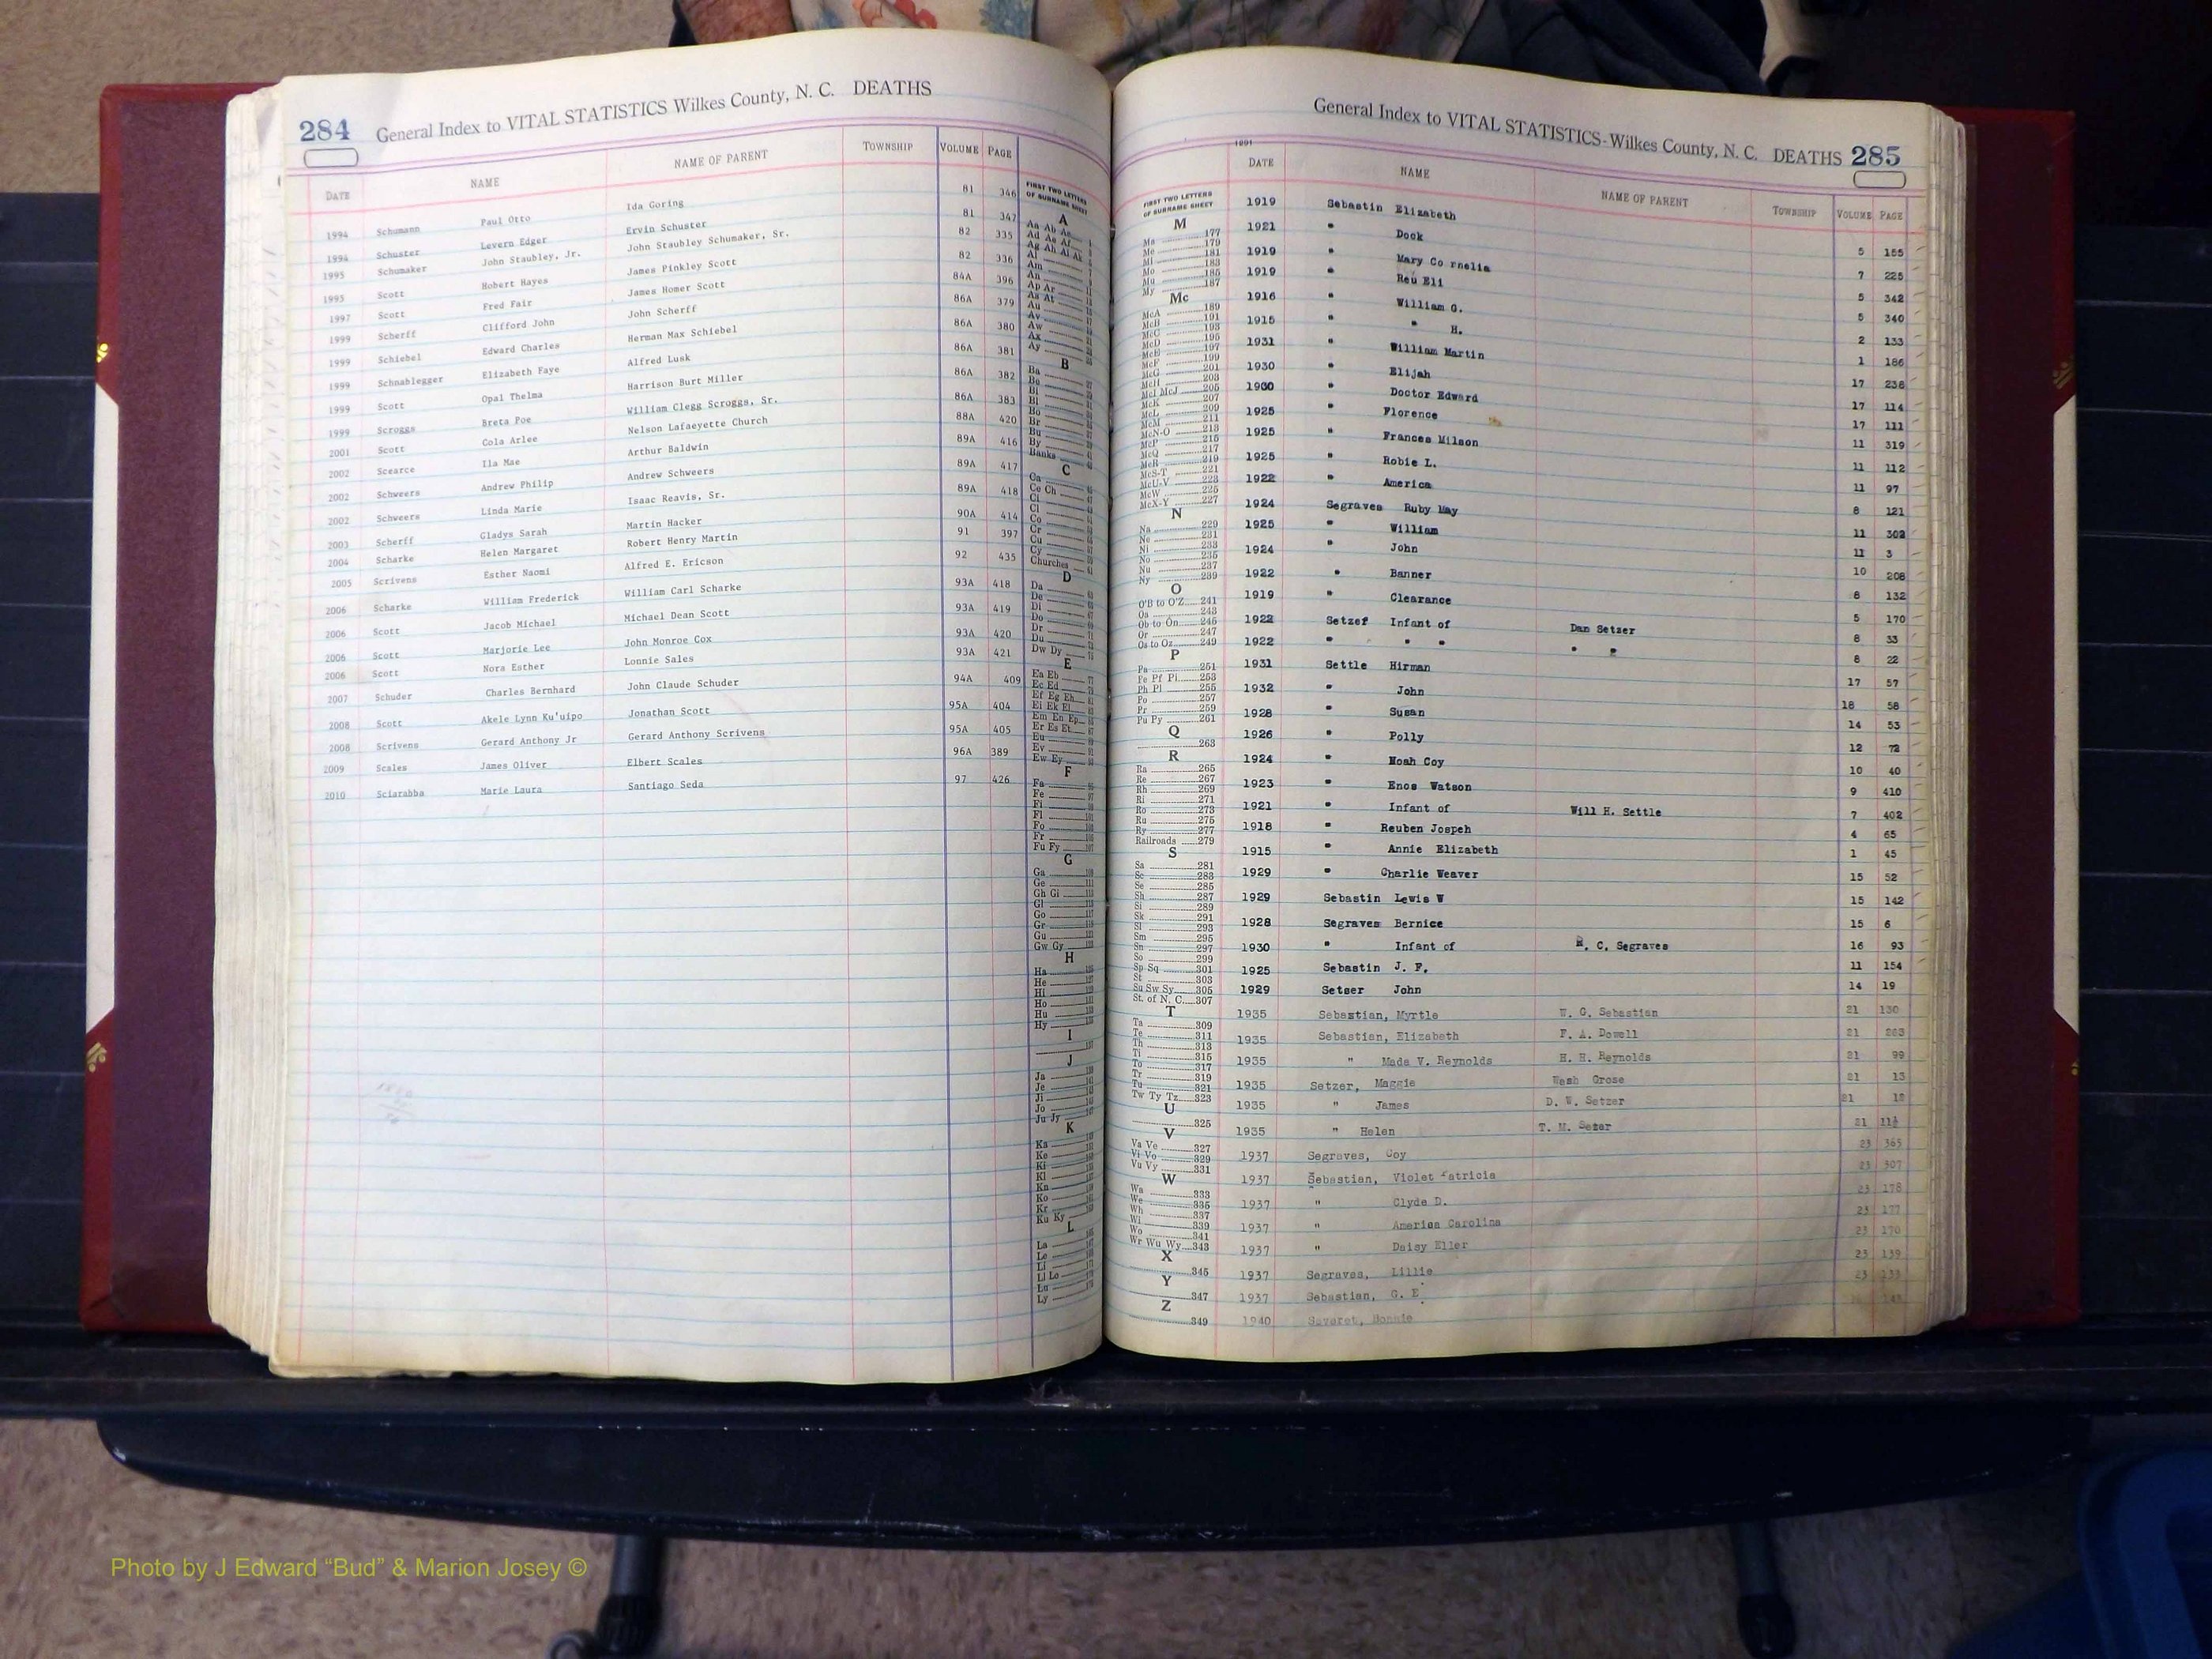 284 General Index to VITAL STATISTICS Wilkes County, N. C. DEATHS
DATE NAME NAME OF PARENT TOWNSHIP VOLUME PAGE
1994 Schumann Paul Otto Ida Goring 81 346
1994 Schuster Levern Edger Ervin Schuster 81 347
1995 Schumaker John Staubley, Jr. John Staubley Schumaker, Sr. 82 335
1995 Scott Hobert Hayes James Pinkley Scott 82 336
1997 Scott Fred Fair James Homer Scott 84A 396
1999 Scherff Clifford John John Scherff 86A 379
1999 Schiebel Edward Charles Herman Max Schiebel 86A 380
1999 Schnablegger Elizabeth Faye Alfred Lusk 86A 381
1999 Scott Opal Thelma Harrison Burt Miller 86A 382
1999 Scroggs Breta Poe William Clegg Scroggs, Sr. 86A 383
2001 Scott Cola Arlee Nelson Lafaeyette Church 88A 420
2002 Scearce Ila Mae Arthur Baldwin 89A 416
2002 Schweers Andrew Philip Andrew Schweers 89A 417
2002 Schweers Linda Marie Isaac Reavis, Sr. 89A 418
2003 Scherff Gladys Sarah Martin Hacker 90A 414
2004 Scharke Helen Margaret Robert Henry Martin 91 397
2005 Scrivens Esther Naomi Alfred E. Ericson 92 435
2006 Scharke William Frederick William Carl Scharke 93A 418
2006 Scott Jacob Michael Michael Dean Scott 93A 419
2006 Scott Marjorie Lee John Monroe Cox 93A 420
2006 Scott Nora Esther Lonnie Sales 93A 421
2007 Schuder Charles Bernhard John Claude Schuder 94A 409
2008 Scott Akele Lynn Ku'uipo Jonathan Scott 95A 404
2008 Scrivens Gerard Anthony Jr Gerard Anthony Scrivens 95A 405
2009 Scales James Oliver Elbert Scales 96A 389
2010 Sciarabba Marie Laura Santiago Seda 97 426
FIRST TWO LETTERS
OF SURNAME SHEET
A
Aa Ab Ac
Ad Ae Af
Ag Ah Ai Ak
Al
Am
An
Ap Ar
As At
Au
Av
Aw
Ax
Ay
B
Ba
Be
Bi
Bl
Bo
Br
Bu
By
Banks
C
Ca
Ce Ch
Ci
Cl
Co
Cr
Cu
Cy
Churches
D
Da
De
Di
Do
Dr
Du
Dw Dy
E
Ea Eb
Ec Ed
Ef Eg Eh
Ei Ek El
Em En Ep
Er Es Et
Eu
Ev
Ew Ey
F
Fa
Fe
Fi
Fl
Fo
Fr
Fu Fy
G
Ga
Ge
Gh Gi
Gl
Go
Gr
Gu
Gw Gy
H
Ha
He
Hi
Ho
Hu
Hy
I
J
Ja
Je
Ji
Jo
Ju Jy
K
Ka
Ke
Ki
Kl
Kn
Ko
Kr
Ku Ky
L
La
Le
Li
Ll Lo
Lu
Ly
General Index to VITAL STATISTICS-Wilkes County, N. C. DEATHS 285
1991
DATE NAME NAME OF PARENT TOWNSHIP VOLUME PAGE
FIRST TWO LETTERS
OF SURNAME SHEET
M
Ma 177
Me 179
Mi 181
Mo 183
Mu 185
My 187
Mc
McA 189
McB 191
McC 193
McD 195
McE 197
McF 199
McG 201
McH 203
McI McJ 205
McK 207
McL 209
McM 211
McN-O 213
McP 215
McQ 217
McR 219
McS-T 221
McU-V 223
McW 225
McX-Y 227
N
Na 229
Ne 231
Ni 233
No 235
Nu 237
Ny 239
O
O'B to O'Z 241
Oa 243
Ob to On 245
Or 247
Os to Oz 249
P
Pa 251
Pe Pf Pi 253
Ph Pl 255
Po 257
Pr 259
Pu Py 261
Q
263
R
Ra 265
Re 267
Rh 269
Ri 271
Ro 273
Ru 275
Ry 277
Railroads 279
S
Sa 281
Sc 283
Se 285
Sh 287
Si 289
Sk 291
Sl 293
Sm 295
Sn 297
So 299
Sp Sq 301
St 303
Su Sw Sy 305
St. of N. C. 307
T
Ta 309
Te 311
Th 313
Ti 315
To 317
Tr 319
Tu 321
Tw Ty Tz 323
U
325
V
Va Ve 327
Vi Vo 329
Vu Vy 331
W
Wa 333
We 335
Wh 337
Wi 339
Wo 341
Wr Wu Wy 343
X
345
Y
347
Z
349
1919 Sebastin Elizabeth 5 155
1921 " Dock 7 225
1919 " Mary Co rnelia 5 342
1919 " Reu Eli 5 340
1916 " William G. 2 133
1915 " " H. 1 186
1931 " William Martin 17 238
1930 " Elijah 17 114
1930 " Doctor Edward 17 111
1925 " Florence 11 319
1925 " Frances Milson 11 112
1925 " Robie L. 11 97
1922 " America 8 121
1924 Segraves Ruby May 11 302
1925 " William 11 3
1924 " John 10 208
1922 " Banner 8 132
1919 " Clearance 5 170
1922 Setzef Infant of Dan Setzer 8 33
1922 " " " " " 8 22
1931 Settle Hirman 17 57
1932 " John 18 58
1928 " Susan 14 53
1926 " Polly 12 72
1924 " Noah Coy 10 40
1923 " Enos Watson 9 410
1921 " Infant of Will H. Settle 7 402
1918 " Reuben Jospeh 4 65
1915 " Annie Elizabeth 1 45
1929 " Charlie Weaver 15 52
1929 Sebastin Lewis W 15 142
1928 Segraves Bernice 15 6
1930 " Infant of C. Segraves 16 93
1925 Sebastin J. F. 11 154
1929 Setser John 14 19
1935 Sebastian, Myrtle W. G. Sebastian 21 130
1935 Sebastian, Elizabeth F. A. Dowell 21 263
1935 " Made V. Reynolds H. H. Reynolds 21 99
1935 Setzer, Maggie Wesh Grose 21 13
1935 " James D. W. Setzer 21 12
1935 " Helen T. M. Setzer 21 11½
1937 Segraves, Coy 23 365
1937 Sebastian, Violet Patricia 23 307
1937 " Clyde D. 23 178
1937 " America Carolina 23 177
1937 " Daisy Eller 23 170
1937 Segraves, Lillie 23 139
1937 Sebastian, G. E. 23 133
1940 Bonnie
Photo by J Edward “Bud” & Marion Josey ©